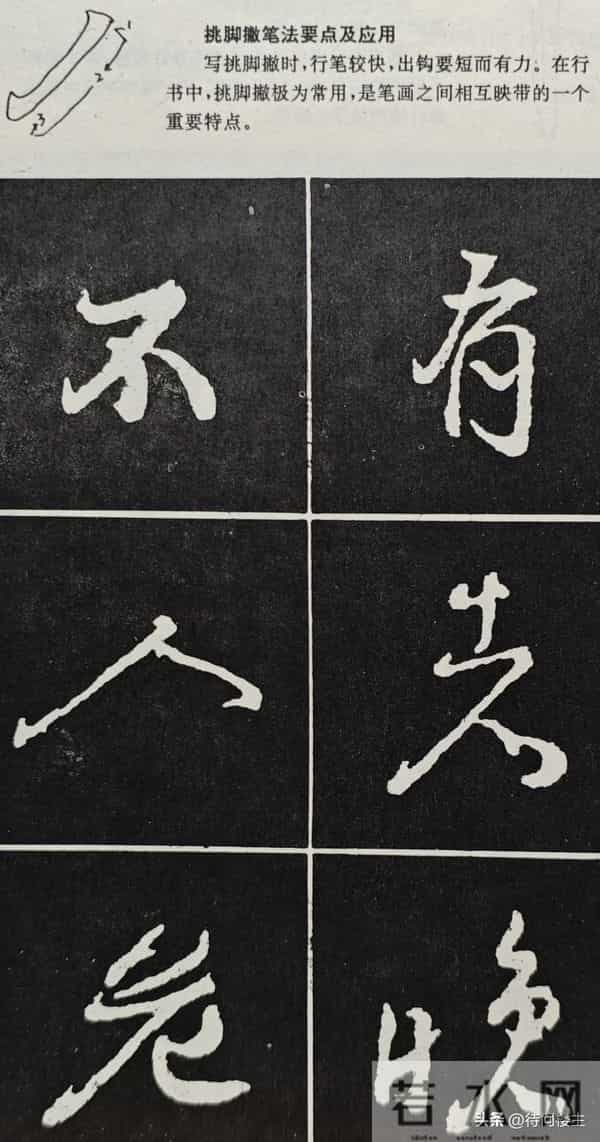 挑脚撇笔法要点及应用
写挑脚撇时，行笔较快，出钩要短而有力。在行
书中，挑脚撇极为常用，是笔画之间相互映带的一个
重要特点。
1
2
3
不 有
人 先
老 晚
若水网
头条 @待问楼主